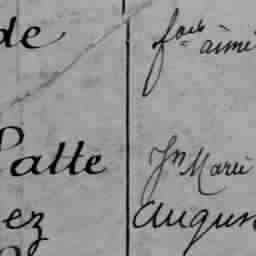 de
aimé
Patte Jn Marie
ez Augus